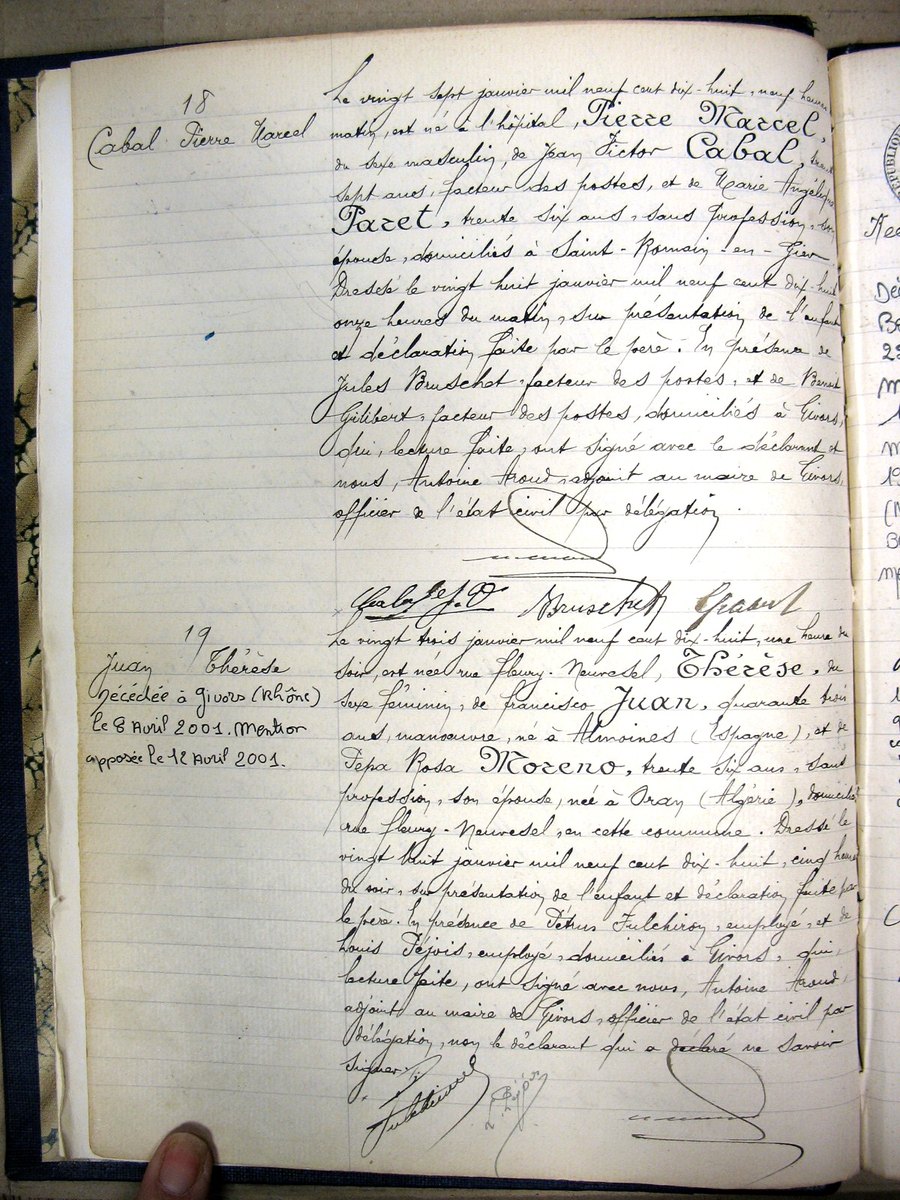 18
Cabal Pierre Marcel
Le vingt sept janvier mil neuf cent dix-huit, neuf heures
matin, est né à l'hôpital, Pierre Marcel,
du sexe masculin, de Jean Victor Cabal, trente
sept ans, facteur des postes, et de Marie Angélique
Paret, trente six ans, sans profession, son
épouse, domiciliés à Saint-Romain-en-Gier
Dressé le vingt huit janvier mil neuf cent dix-huit
onze heures du matin, sur présentation de l'enfant
et déclaration faite par le père. En présence de
Jules Bruschet, facteur des postes, et de Benoit
Gilibert, facteur des postes, domiciliés à Givors,
qui, lecture faite, ont signé avec le déclarant et
nous, Antoine Aroud, adjoint au maire de Givors,
officier de l'état civil par délégation.
Bruschet
19
Juan Thérèse
Décédée à Givors (Rhône)
le 8 Avril 2001. Mention
apposée le 12 Avril 2001.
Le vingt trois janvier mil neuf cent dix-huit, une heure du
soir, est née rue Fleury-Neuvesel, Thérèse, du
sexe féminin, de Francisco Juan, quarante trois
ans, manœuvre, né à Almoines (Espagne), et de
Pepa Rosa Moreno, trente six ans, sans
profession, son épouse, née à Oran (Algérie), domiciliés
rue Fleury-Neuvesel, en cette commune. Dressé le
vingt huit janvier mil neuf cent dix-huit, cinq heures
du soir, sur présentation de l'enfant et déclaration faite par
le père. En présence de Pétrus Fulchiron, employé, et de
Louis Péjois, employé, domiciliés à Givors, qui,
lecture faite, ont signé avec nous, Antoine Aroud,
adjoint au maire de Givors, officier de l'état civil par
délégation, non le déclarant qui a declaré ne savoir
signer.